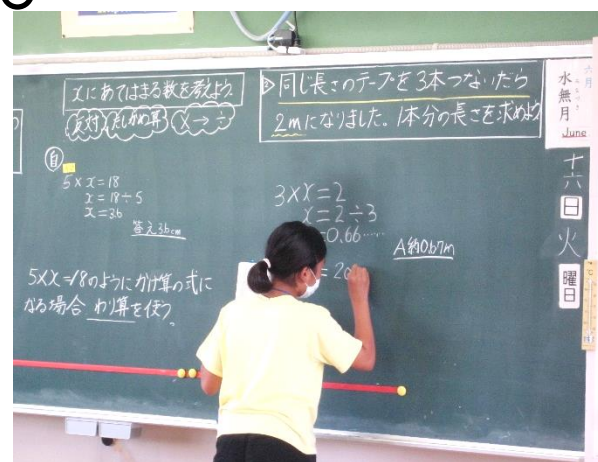 xにあてはまる数を考えよう。
反対 たしかめ算 X→÷
自
5×x=18
x=18÷5
x=3.6
答え3.6cm
5×x=18のようにかけ算の式に
なる場合 わり算を使う。
同じ長さのテープを3本つないだら
2mになりました。1本分の長さを求めよう
3×x=2
x=2÷3
=0.66……
A 約0.67m
= 20
六月
水無月
June
十六日
火
曜日